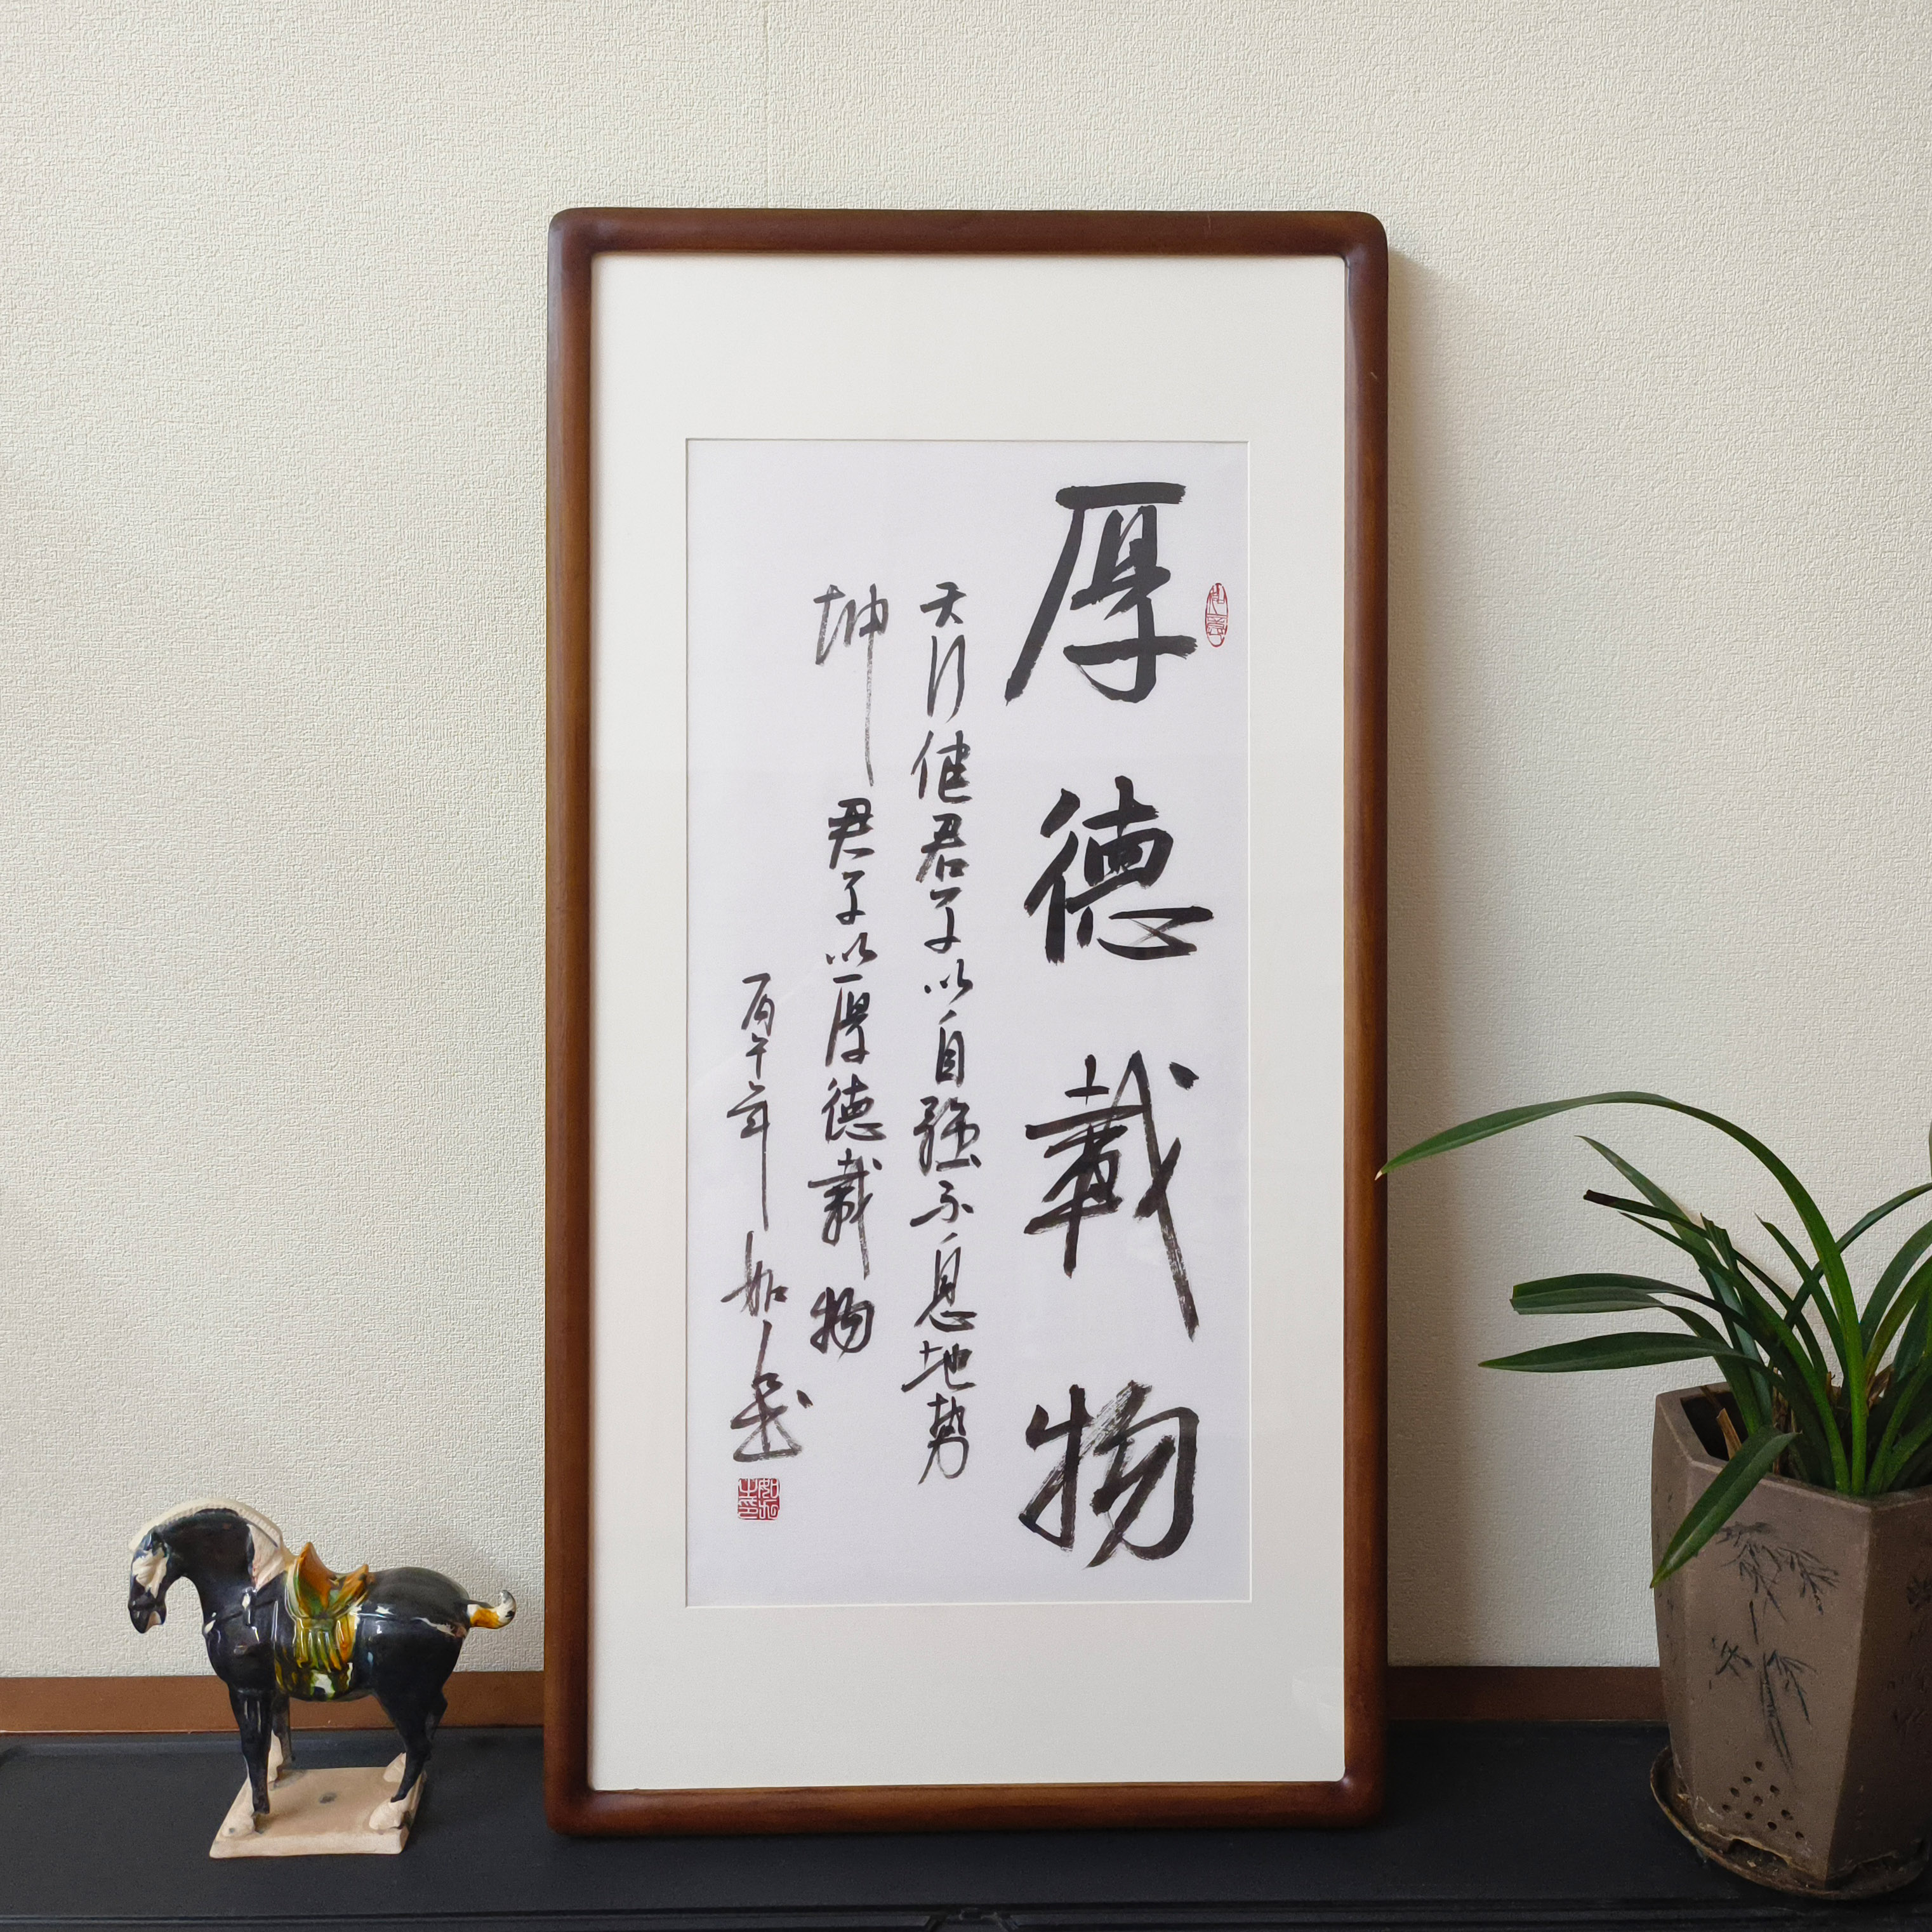 厚德載物
天行健君子以自強不息地勢
坤君子以厚德載物
丙午年如岳